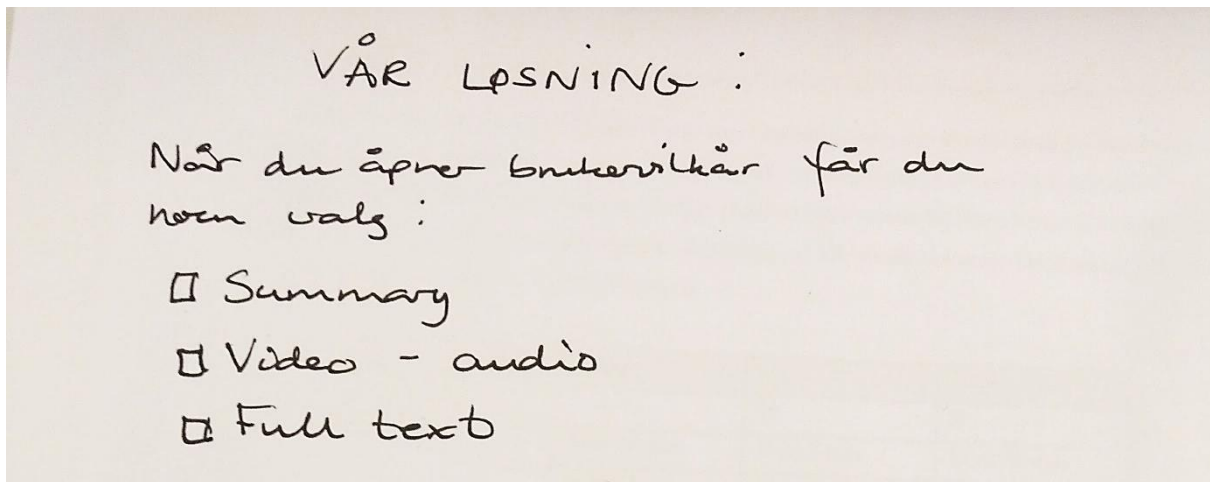 VÅR LØSNING :
Når du åpner brukervilkår får du
noen valg :
☐ Summary
☐ Video - audio
☐ Full text